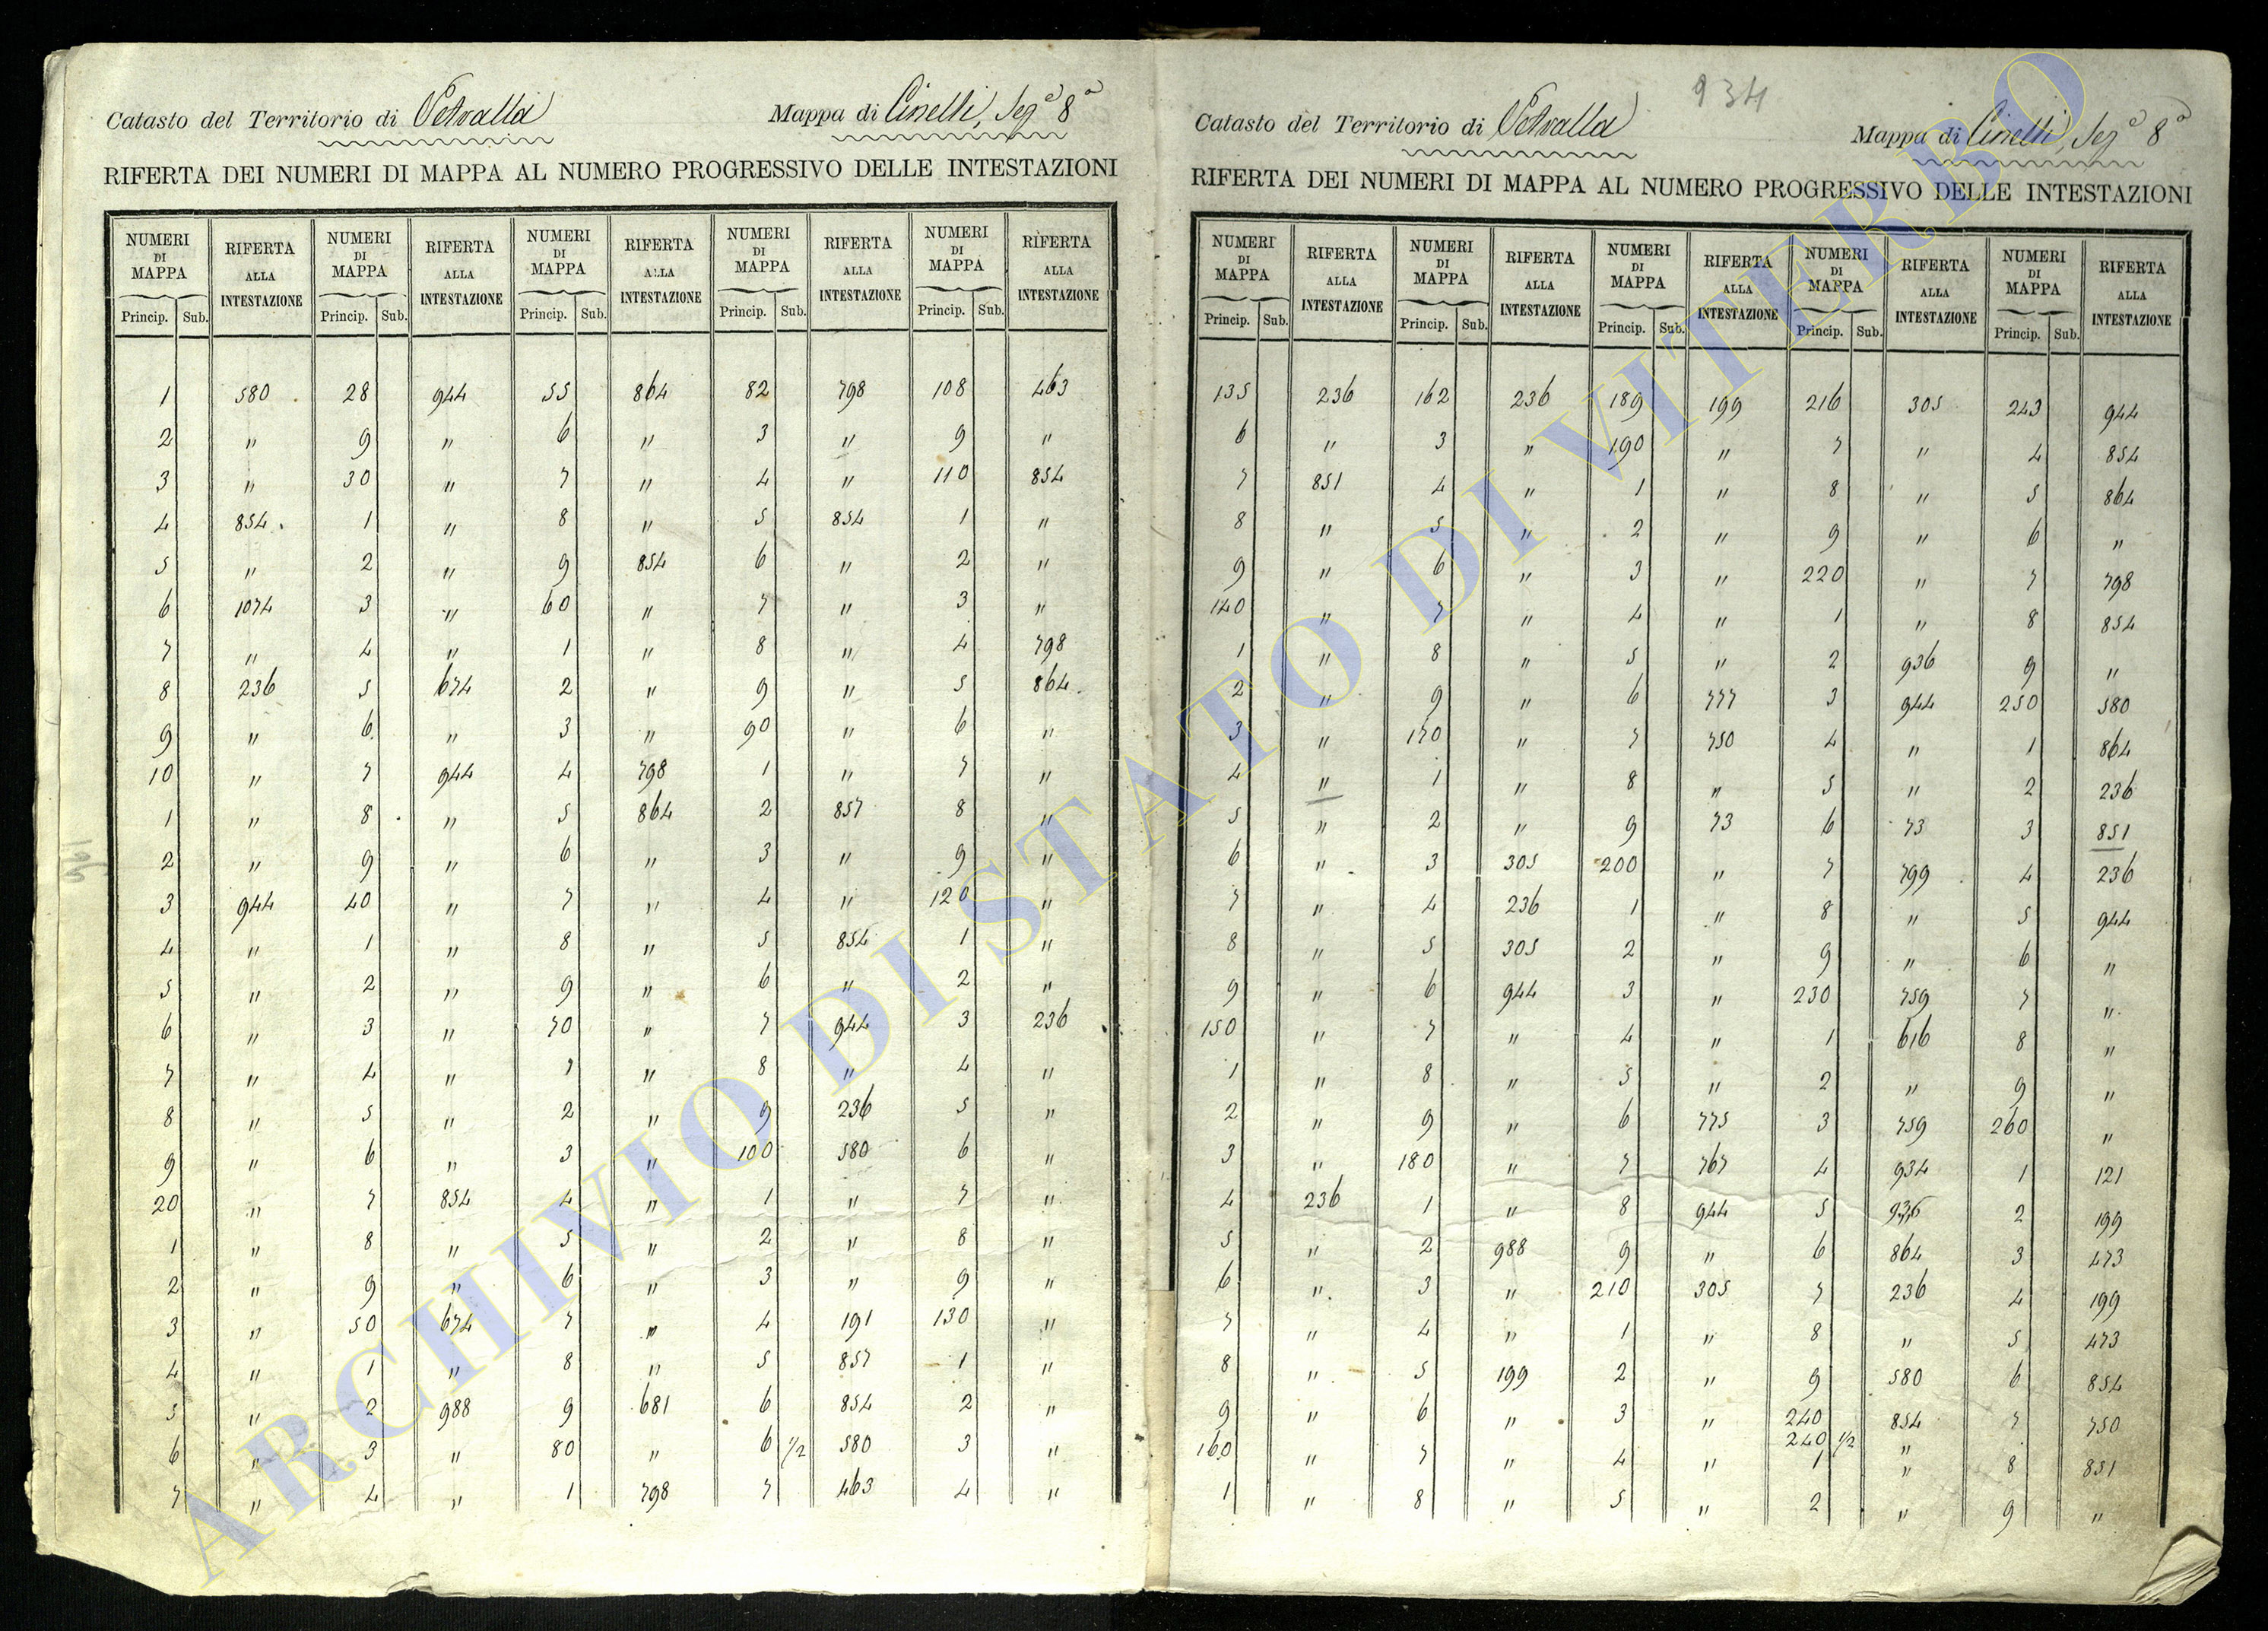 934
Catasto del Territorio di Vetralla Mappa di Cinelli, Sez.e 8a
RIFERTA DEI NUMERI DI MAPPA AL NUMERO PROGRESSIVO DELLE INTESTAZIONI
NUMERI DI MAPPA RIFERTA ALLA INTESTAZIONE NUMERI DI MAPPA RIFERTA ALLA INTESTAZIONE NUMERI DI MAPPA RIFERTA ALLA INTESTAZIONE NUMERI DI MAPPA RIFERTA ALLA INTESTAZIONE NUMERI DI MAPPA RIFERTA ALLA INTESTAZIONE
Princip. Sub. Princip. Sub. Princip. Sub. Princip. Sub. Princip. Sub.
1 580 28 944 55 864 82 798 108 463
2 " 9 " 6 " 3 " 9 "
3 " 30 " 7 " 4 " 110 854
4 854 1 " 8 " 5 854 1 "
5 " 2 " 9 854 6 " 2 "
6 1074 3 " 60 " 7 " 3 "
7 " 4 " 1 " 8 " 4 798
8 236 5 674 2 " 9 " 5 864
9 " 6 " 3 " 90 " 6 "
10 " 7 944 4 798 1 " 7 "
1 " 8 " 5 864 2 857 8 "
2 " 9 " 6 " 3 " 9 "
3 944 40 " 7 " 4 " 120 "
4 " 1 " 8 " 5 854 1 "
5 " 2 " 9 " 6 " 2 "
6 " 3 " 70 " 7 944 3 236
7 " 4 " 1 " 8 " 4 "
8 " 5 " 2 " 9 236 5 "
9 " 6 " 3 " 100 580 6 "
20 " 7 854 4 " 1 " 7 "
1 " 8 " 5 " 2 " 8 "
2 " 9 " 6 " 3 " 9 "
3 " 50 674 7 " 4 191 130 "
4 " 1 " 8 " 5 857 1 "
5 " 2 988 9 681 6 854 2 "
6 " 3 " 80 " 6 1/2 580 3 "
7 " 4 " 1 798 7 463 4 "
Catasto del Territorio di Vetralla Mappa di Cinelli, Sez.e 8a
RIFERTA DEI NUMERI DI MAPPA AL NUMERO PROGRESSIVO DELLE INTESTAZIONI
NUMERI DI MAPPA RIFERTA ALLA INTESTAZIONE NUMERI DI MAPPA RIFERTA ALLA INTESTAZIONE NUMERI DI MAPPA RIFERTA ALLA INTESTAZIONE NUMERI DI MAPPA RIFERTA ALLA INTESTAZIONE NUMERI DI MAPPA RIFERTA ALLA INTESTAZIONE
Princip. Sub. Princip. Sub. Princip. Sub. Princip. Sub. Princip. Sub.
135 236 162 236 189 199 216 305 243 944
6 " 3 " 190 " 7 " 4 854
7 851 4 " 1 " 8 " 5 864
8 " 5 " 2 " 9 " 6 "
9 " 6 " 3 " 220 " 7 798
140 " 7 " 4 " 1 " 8 854
1 " 8 " 5 " 2 936 9 "
2 " 9 " 6 777 3 944 250 580
3 " 170 " 7 750 4 " 1 864
4 " 1 " 8 " 5 " 2 236
5 " 2 " 9 73 6 73 3 851
6 " 3 305 200 " 7 799 4 236
7 " 4 236 1 " 8 " 5 944
8 " 5 305 2 " 9 " 6 "
9 " 6 944 3 " 230 759 7 "
150 " 7 " 4 " 1 616 8 "
1 " 8 " 5 " 2 " 9 "
2 " 9 " 6 775 3 759 260 "
3 " 180 " 7 767 4 934 1 121
4 236 1 " 8 944 5 936 2 199
5 " 2 988 9 " 6 864 3 473
6 " 3 " 210 305 7 236 4 199
7 " 4 " 1 " 8 " 5 473
8 " 5 199 2 " 9 580 6 854
9 " 6 " 3 " 240 854 7 750
240 1/2 "
160 " 7 " 4 " 1 " 8 851
1 " 8 " 5 " 2 " 9 "
ARCHIVIO DI STATO DI VITERBO